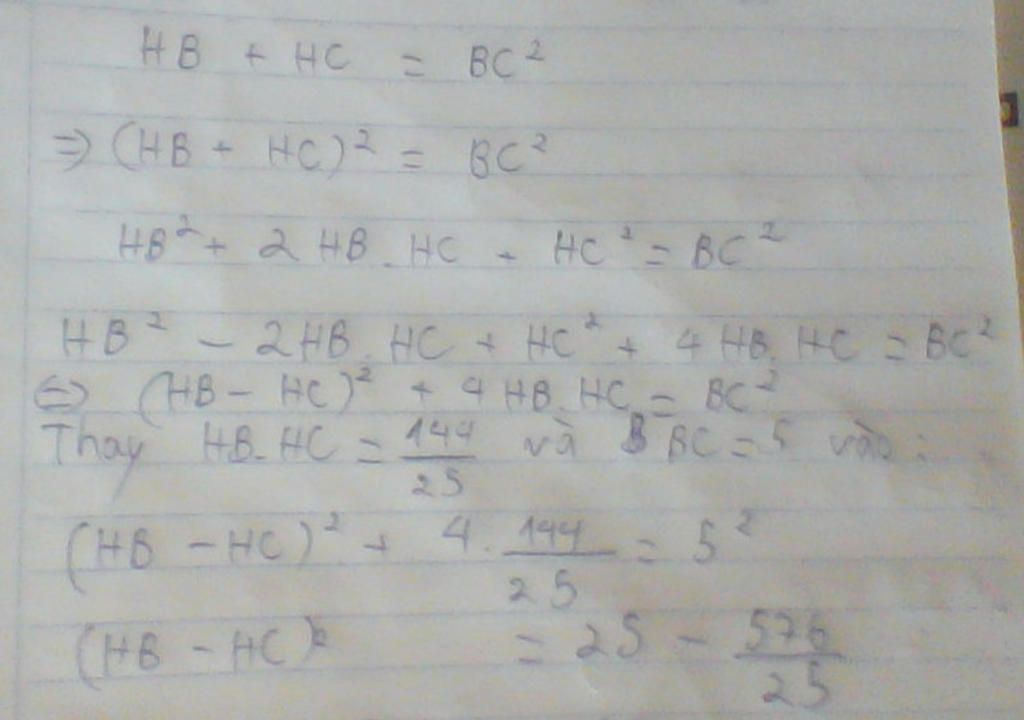 HB + HC = BC²
⇒ (HB + HC)² = BC²
HB² + 2 HB . HC + HC² = BC²
HB² - 2HB . HC + HC² + 4 HB. HC = BC²
⇔ (HB - HC)² + 4 HB. HC = BC²
Thay HB. HC = 144/25 và BC = 5 vào :
(HB - HC)² + 4 . 144/25 = 5²
(HB - HC)² = 25 - 576/25